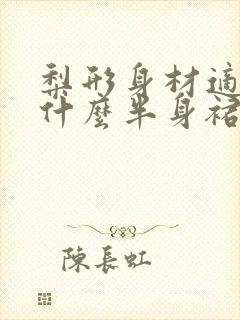 梨形身材適
什麼半身裙
陳長虹